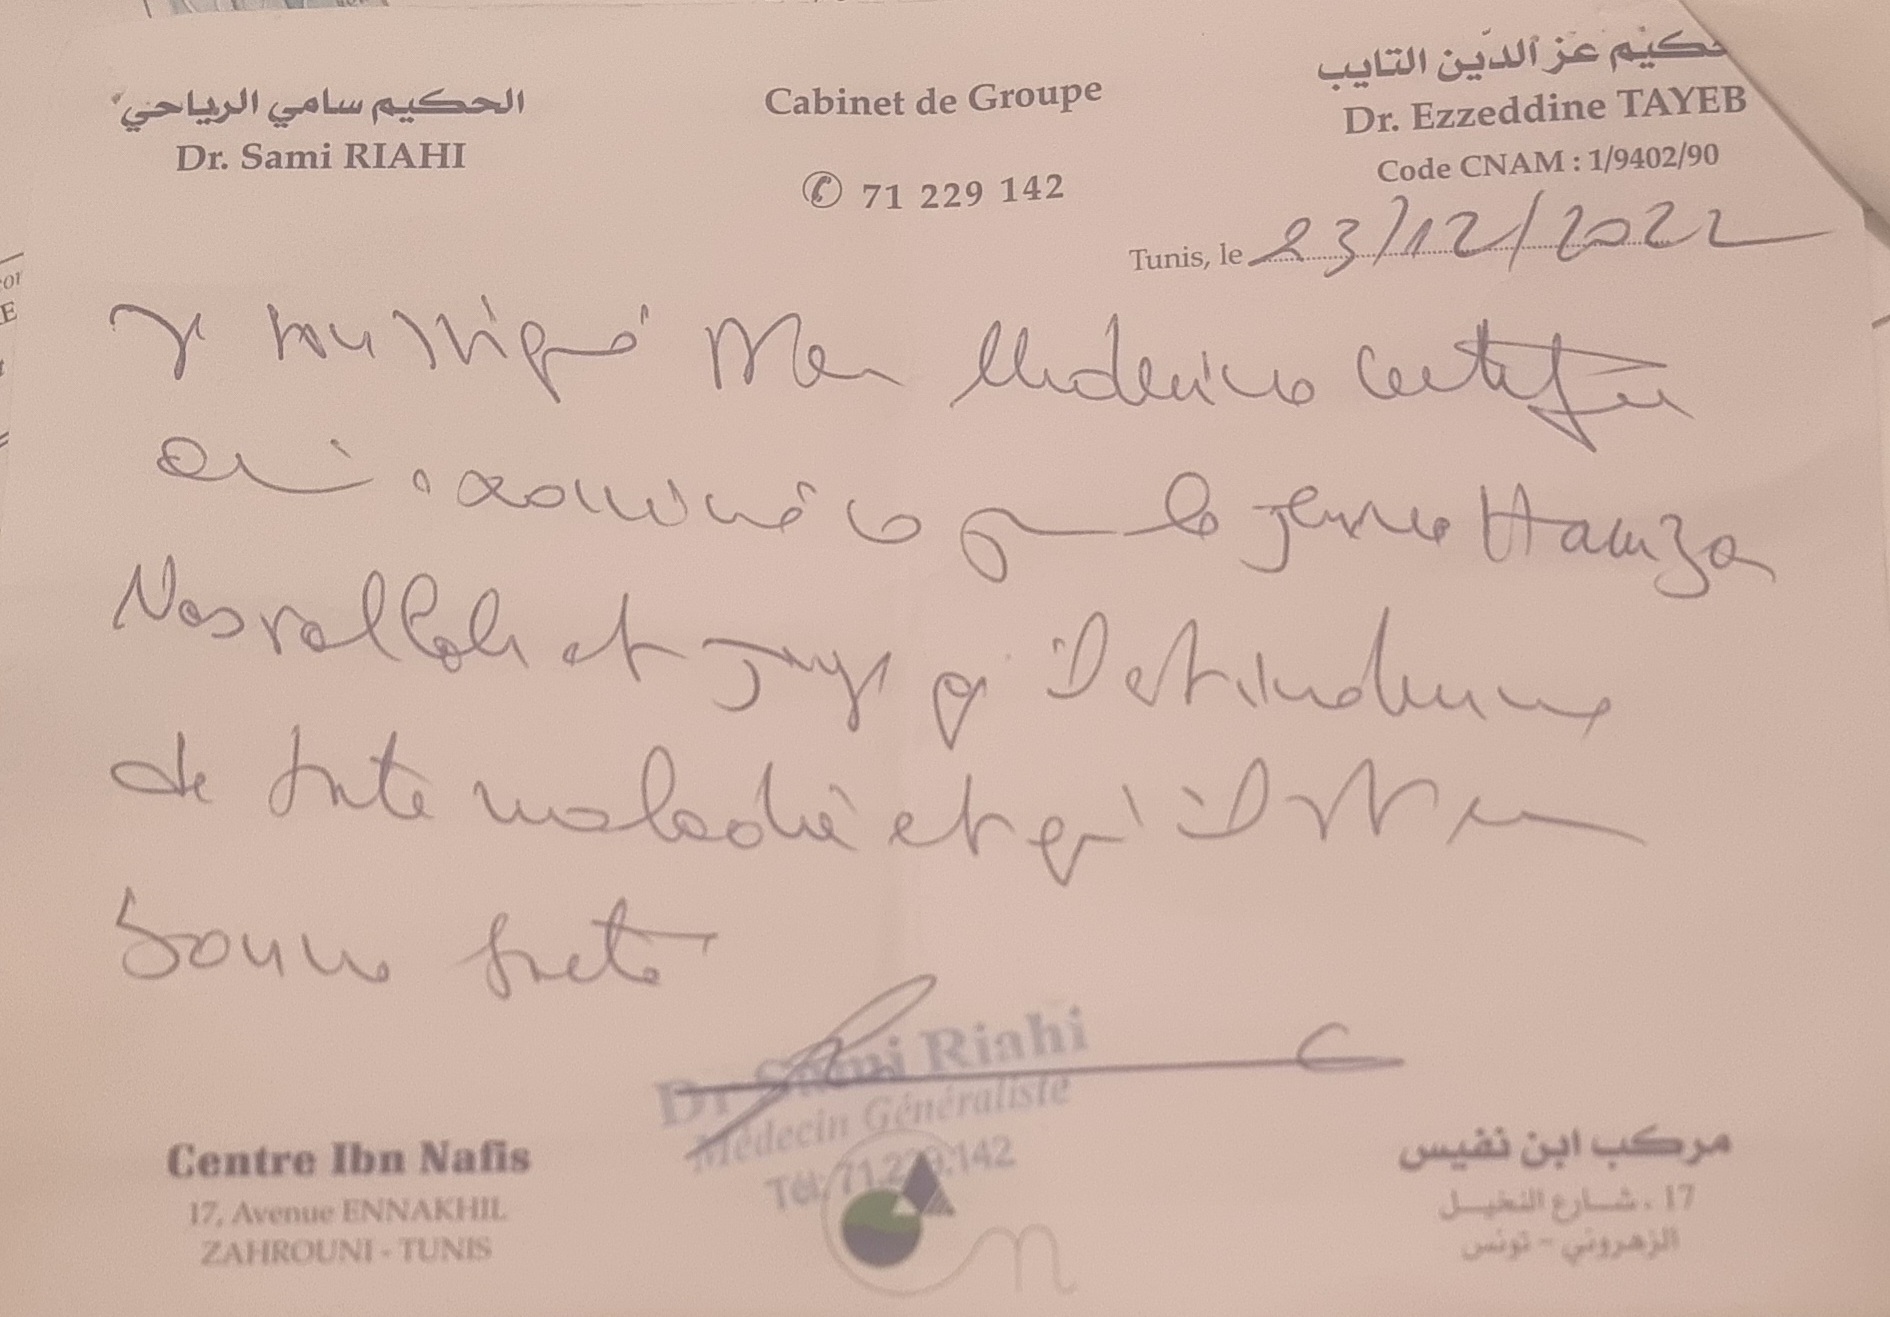 الحكيم سامي الرياحي
Dr. Sami RIAHI
Cabinet de Groupe
✆ 71 229 142
حكيم عز الدين التايب
Dr. Ezzeddine TAYEB
Code CNAM : 1/9402/90
Tunis, le 23/12/2022
Je soussigné Mer Médecine certifie
avoir examiné ce jour le jeune Hamza
Nasrallah et juge qu'il est indemne
de toute maladie et qu'il est en
bonne santé
Dr Sami Riahi
Médecin Généraliste
Tél: 71.229.142
Centre Ibn Nafis
17, Avenue ENNAKHIL
ZAHROUNI - TUNIS
مركب ابن نفيس
17 ، شارع النخيل
الزهروني - تونس